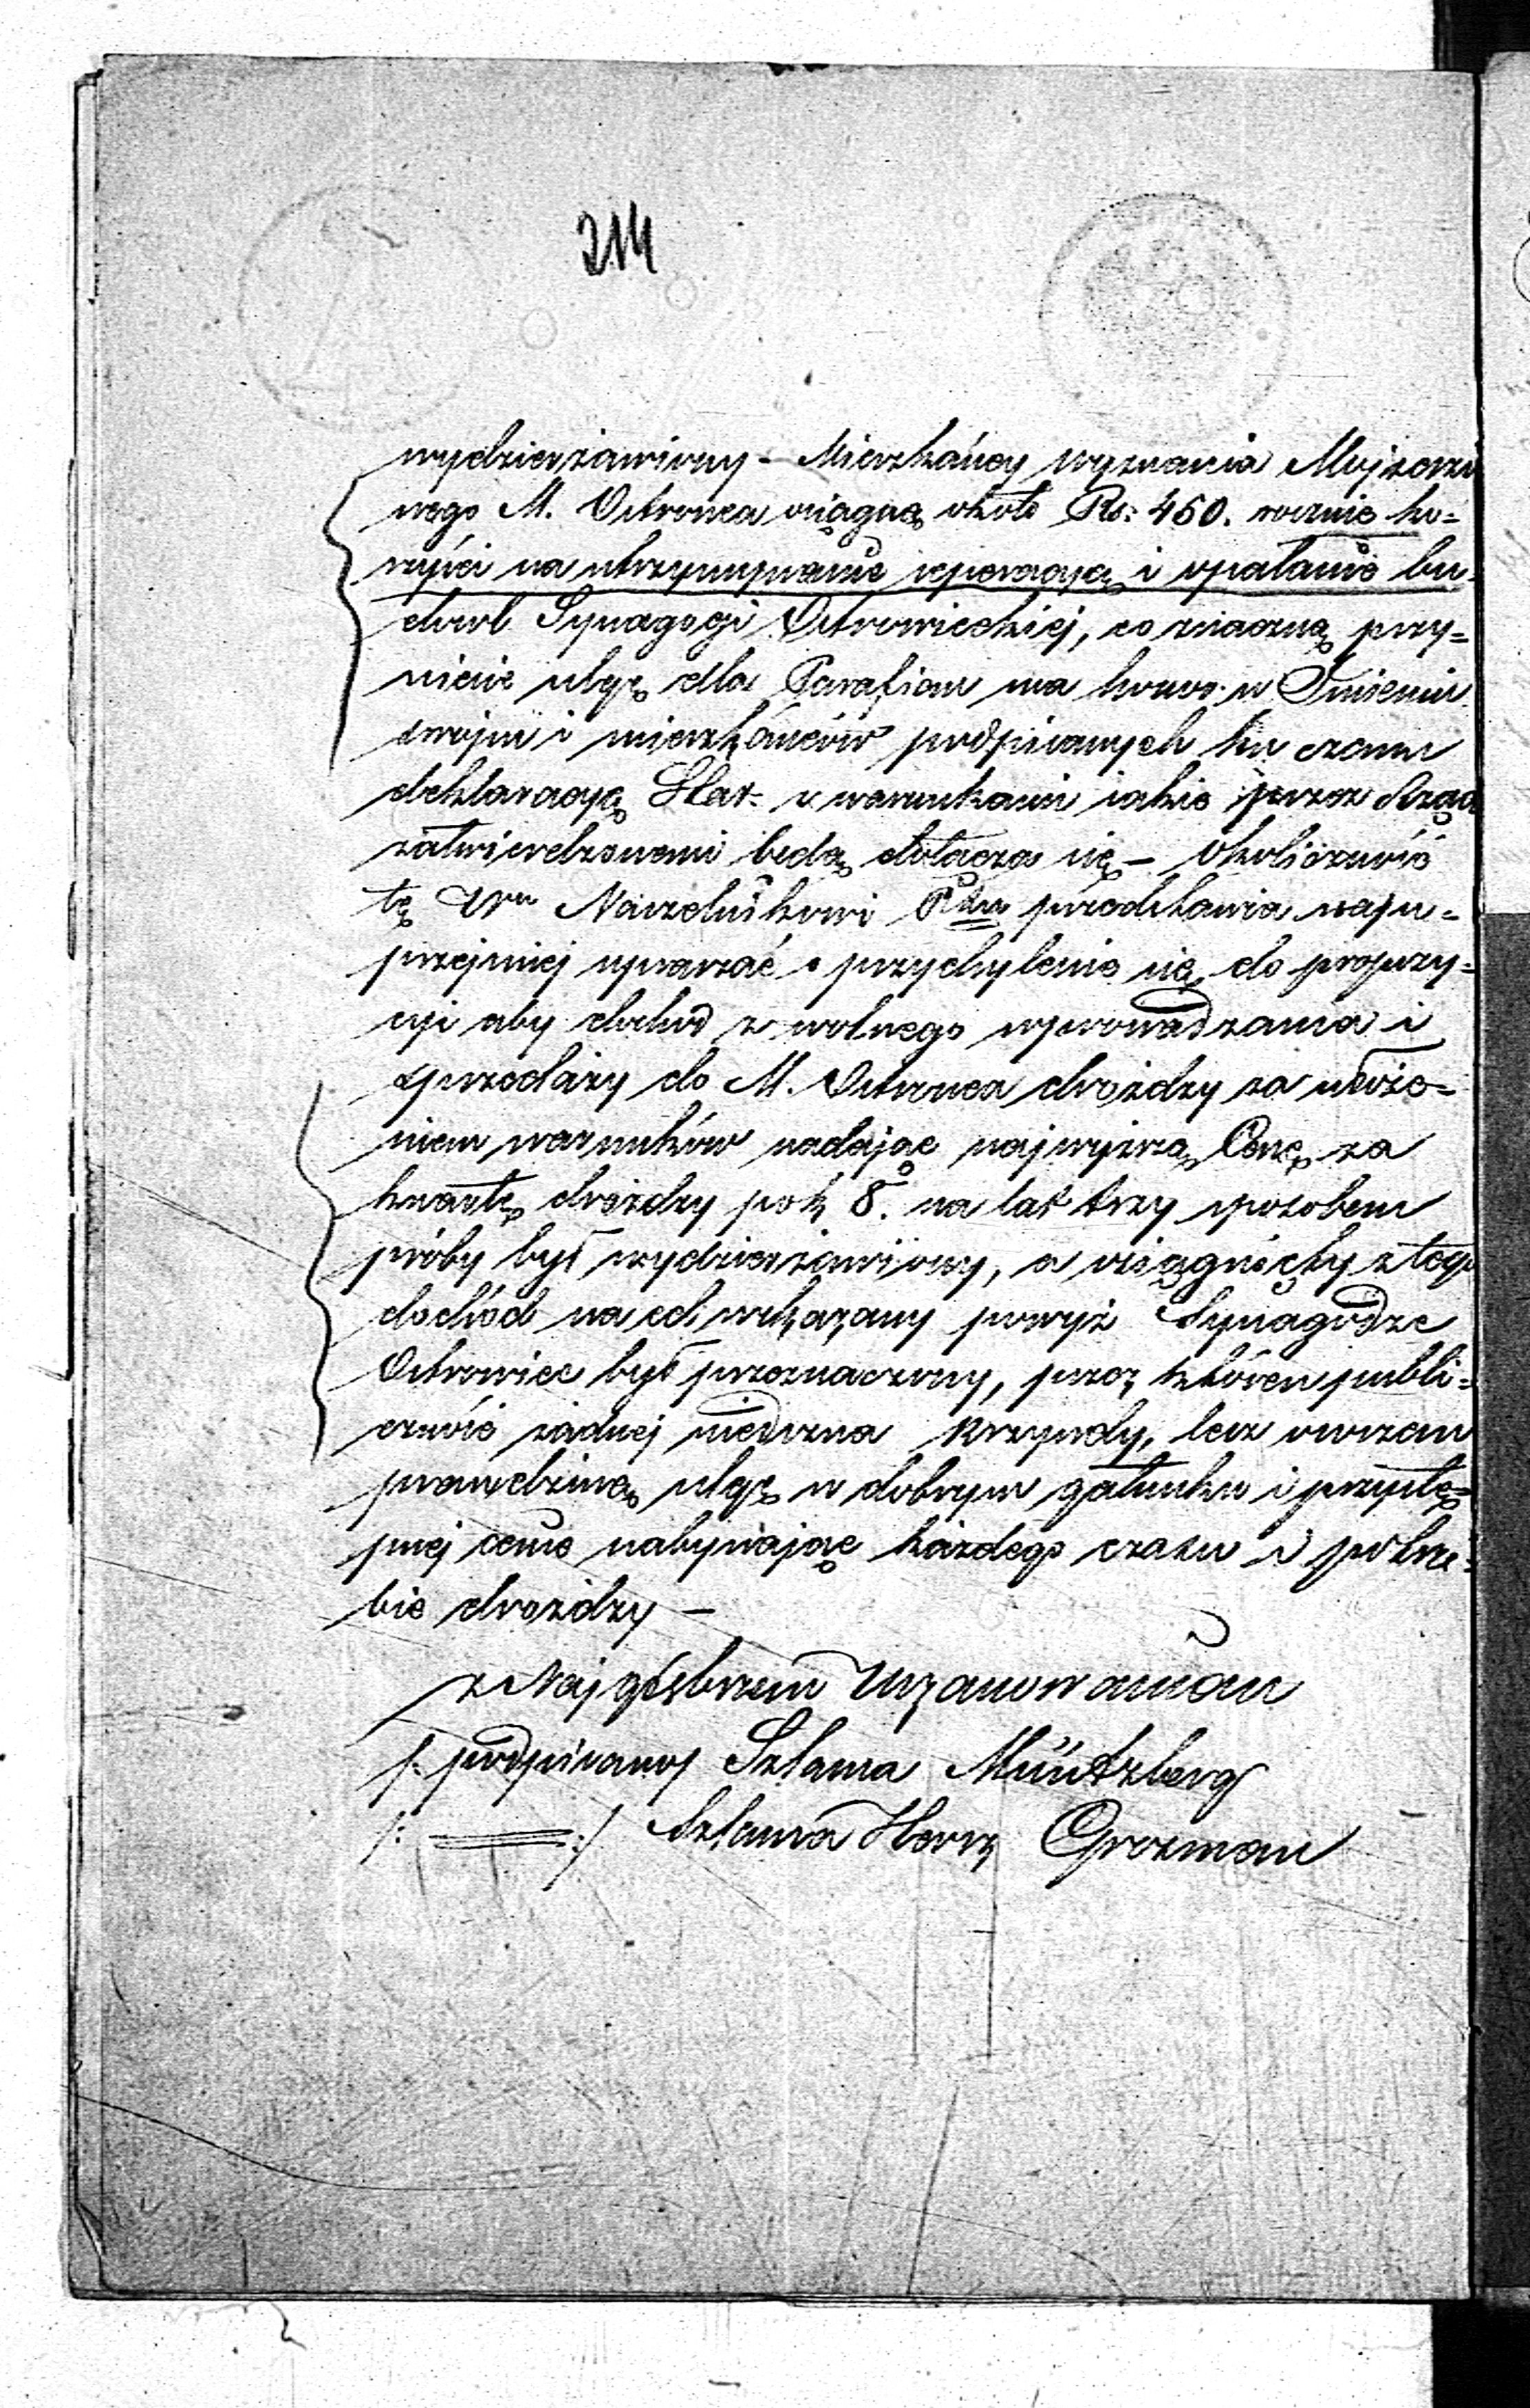 214
wydzierżawiony – Mieszkańcy wyznania Mojżeszo
wego M. Ostrowca osiągną około Rs: 450. rocznie ko=
rzyści na utrzymywanie reperacyą i opalanie bu=
dowl Synagogi Ostrowieckiej, co znaczną przy=
niesie ulgę dla Parafian ma honor w Imieniu
swojem i mieszkańców podpisanych ku czemu
deklaracyą z warunkami iakie przez Rząd
zatwierdzonemi będą dołącza się – Okoliczność
tę Wmu Naczelnikowi Ptu przedstawia naju=
przejmiej upraszać o przychylenie się do propozy=
cyi aby dochód z wolnego wprowadzania i
sprzedaży do M. Ostrowca drożdży za ułoże=
niem warunków nadając najwyższą Cenę za
kwartę drożdży po k 8. na lat trzy sposobem
próby był wydzierżawiony, a osiągnięty z tego
dochód na cel wskazany powyż Synagodze
Ostrowiec był przeznaczony, przez któren publi=
czność żadnej niedozna krzywdy, lecz owszem
prawdziwą ulgę w dobrym gatunku i przystę=
pnej cenie nabywając każdego czasu i potrze=
bie drożdży –
z Najgłębszem Uszanowaniem
/: podpisano/ Szlama Müntzberg
/: = :/ Szlama Hersz Grosman